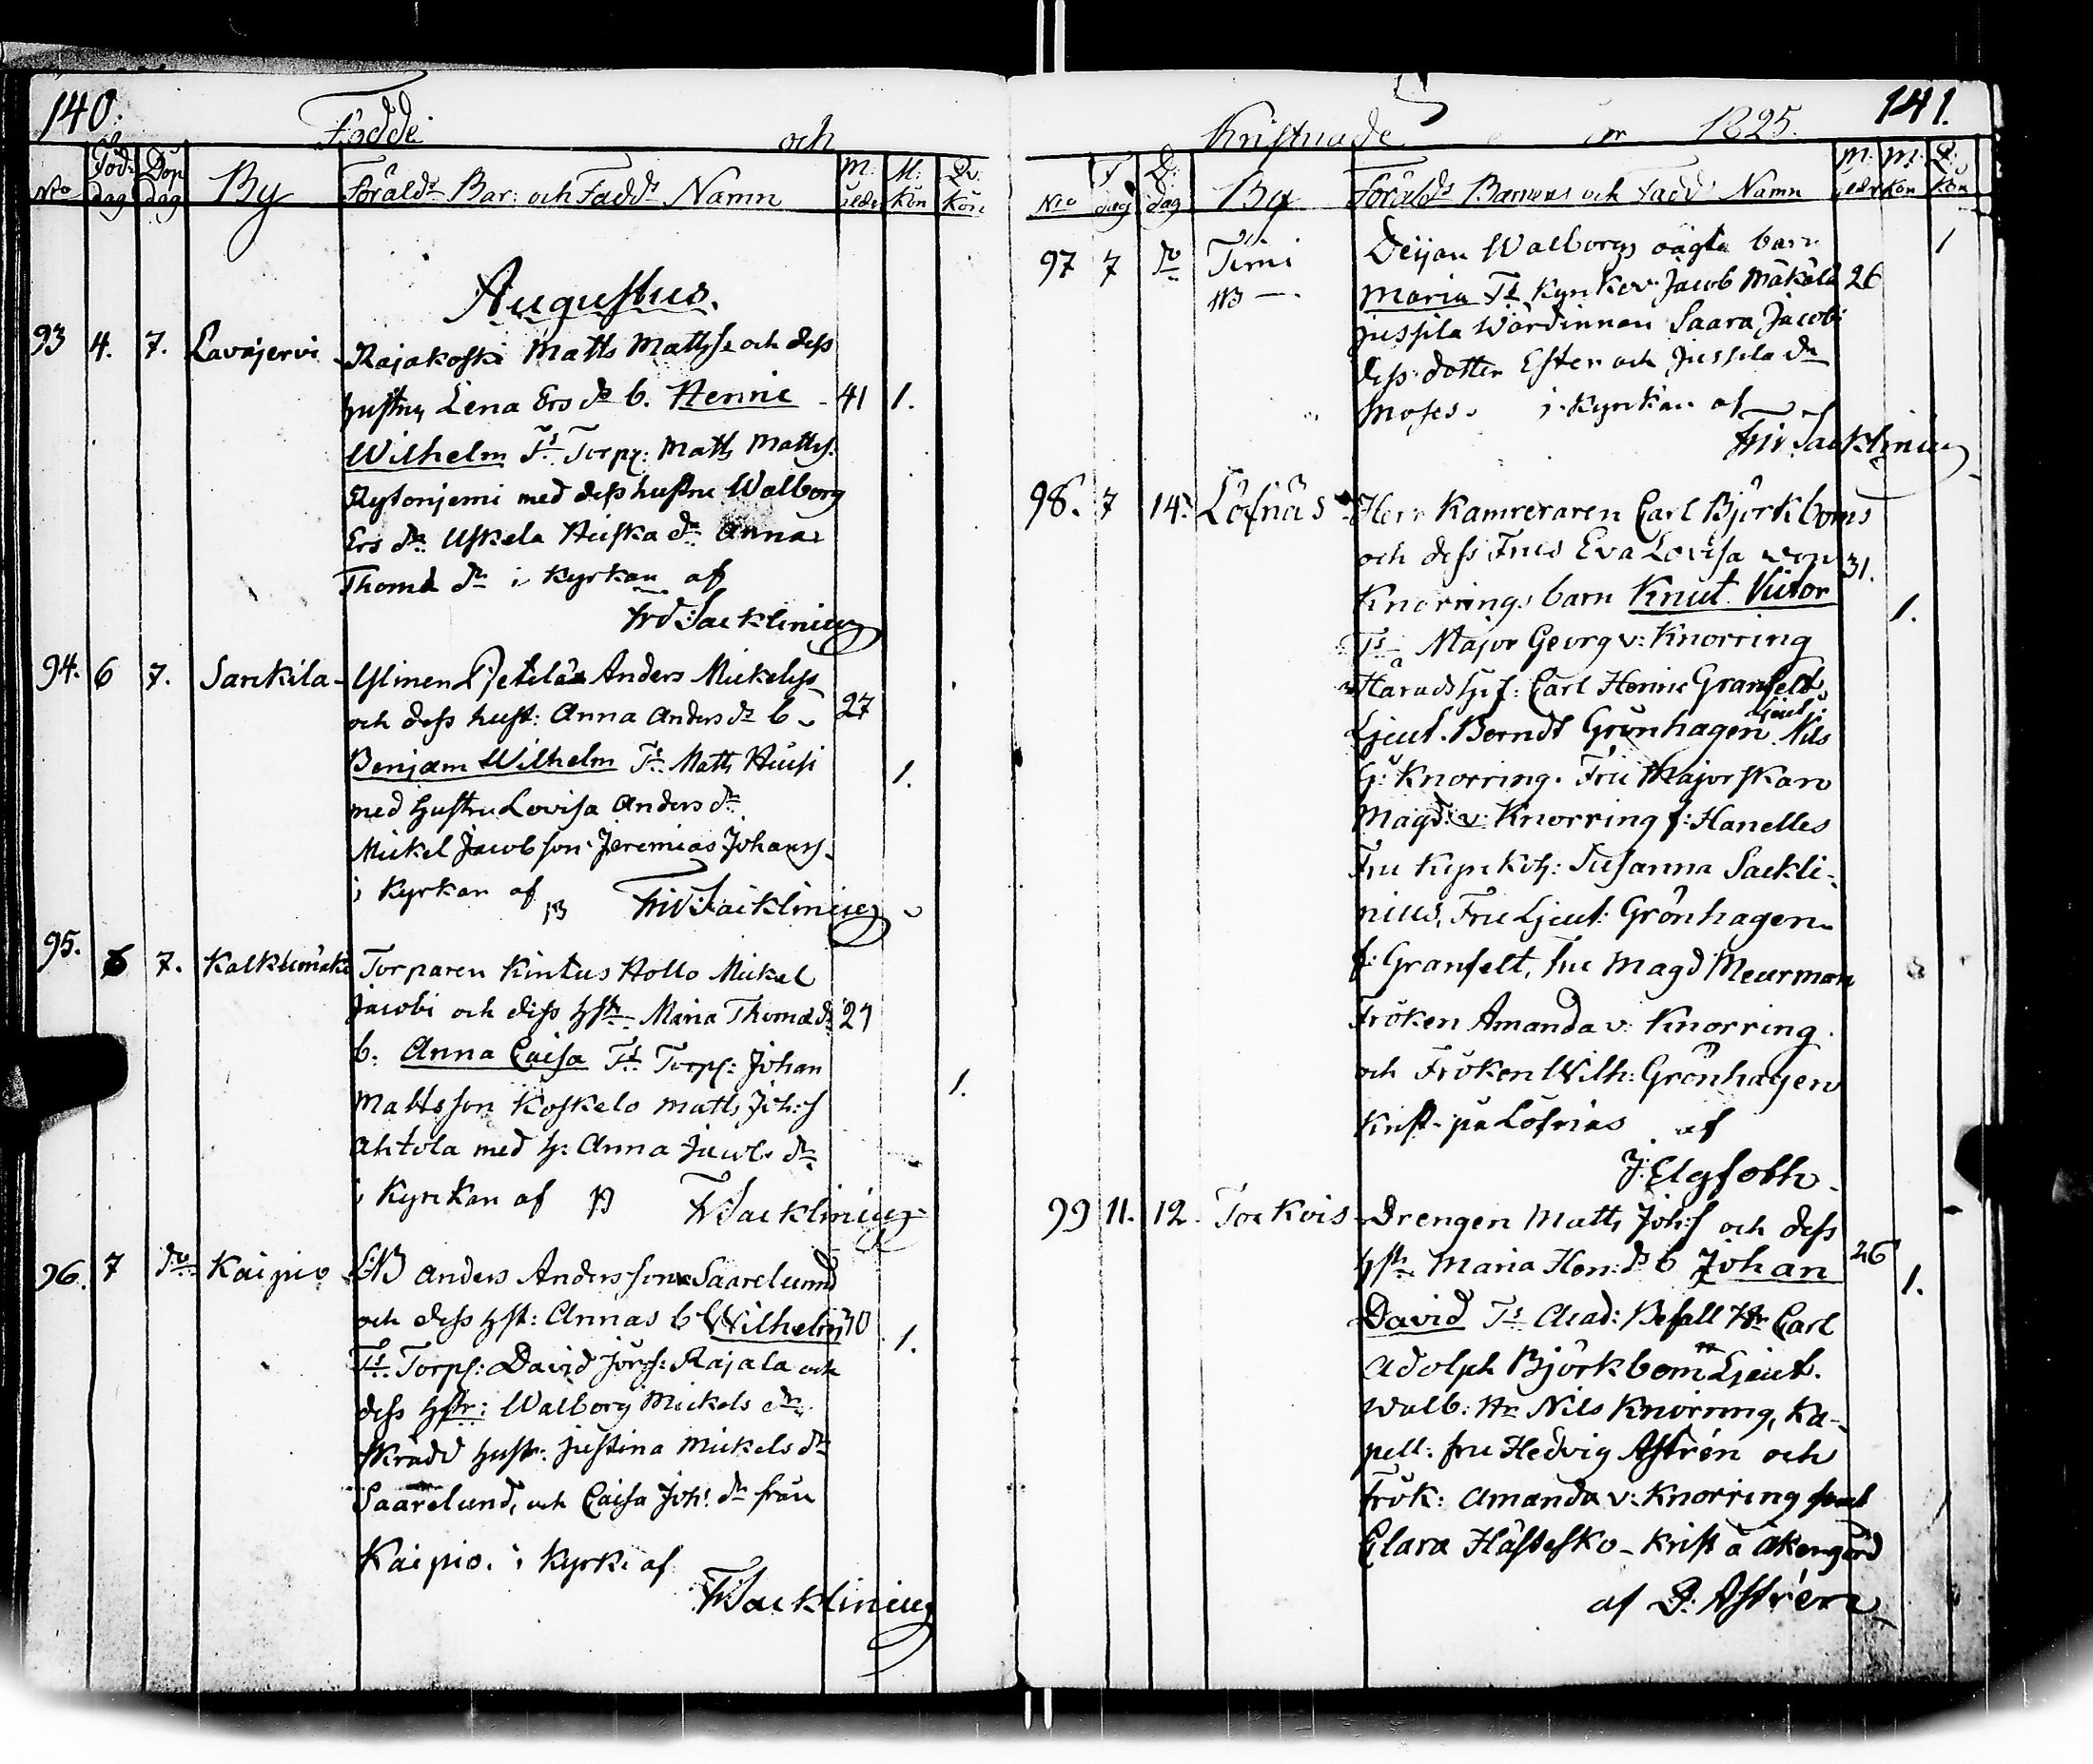 140.
Födde och
No Föd: dag Döp dag By Föräld:s Bar: och Fadd:s Namn M: ålder M: Kön Qv: Kön
Augustus.
93 4. 7. Lavajervi Rajakoski Matts Mattss: och dess
hustru Lena Ers dr b. Henric 41 1.
Wilhelm Fs Torp: Matts Mattss:
med dess hustru Walborg
Ers dr Uskela Heiska dr Anna
Thomæ dr i Kyrkan af
Frd: Sacklinius
94. 6 7. Sankila Ylinen Pietilä Anders Mickelss
och dess hust: Anna Anders dr b. 27
Benjam Wilhelm Fs Matts Heusi 1.
med hustru Lovisa Anders dr
Mickel Jacobson Jeremias Johanss.
i Kyrkan af Sacklinius
95. 6 7. Kalkkimäki Torparen Kintus Hollo Mickel
Jacobi och dess hstr Maria Thomæ dr 29
b. Anna Caisa Fs Torp: Johan 1.
Mattsson Koskelo Matts Joh:s
Ahtola med h: Anna Jacobs dr
i Kyrkan af Sacklinius
96. 7 do Kaipio Anders Andersson Saarelund
och dess hst: Annas b Wilhelm 40 1.
Fs Torp: David Rajala och
dess hstr: Walborg Mickels dr
Skrädd hustr: Justina Mickels dr
Saarelund, och Caisa Joh: dr från
Kaipio. i Kyrk: af
Sacklinius
141.
Kristnade 1825.
No F dag D: dag By Föräld:s Barnens och Fadd:s Namn M: ålder M: Kön Q: Kön
97 7 do Timi Deijan Walborgs oägta barn 1
Maria Fs Kyrkov: Jacob Mäkälä 26
Jussila Wärdinnan Saara Jacobi
dess dotter Ester och Jussila dr
Moses. i Kyrkan af
Sacklinius
98. 7 14. Löfnäs Herr Kamreraren Carl Björkboms
och dess Frus Eva Lovisa von 31.
Knorrings barn Knut Victor 1.
Fs Major Georg v: Knorring
Häradshöf: Carl Henric Granfelt
Ljeut. Berndt Grönhagen Ljeut: Nils
G: Knorring. Fru Majorskan
Magd: v: Knorring f: Hanelles
Fru Kyrkoh: Susanna Sackli-
nius, Fru Ljeut: Grönhagen
f: Granfelt, Fru Magd Meurman
Fröken Amanda v: Knorring
och Fröken Wilh: Grönhagen
Krist. på Löfnäs af
J: Elgfoth
99 11. 12. Torkois Drengen Matts Joh:s och dess
hstr Maria Hen: dr b Johan 26 1.
David Fs Acad: Befall Hr Carl
Adolph Björkbom Ljeut.
Walb: Hr Nils Knorring, Ka-
pell: fru Hedvig Astrén och
Frök: Amanda v: Knorring samt
Clara Hästesko - Krist å Åkengård
af D: Astrén